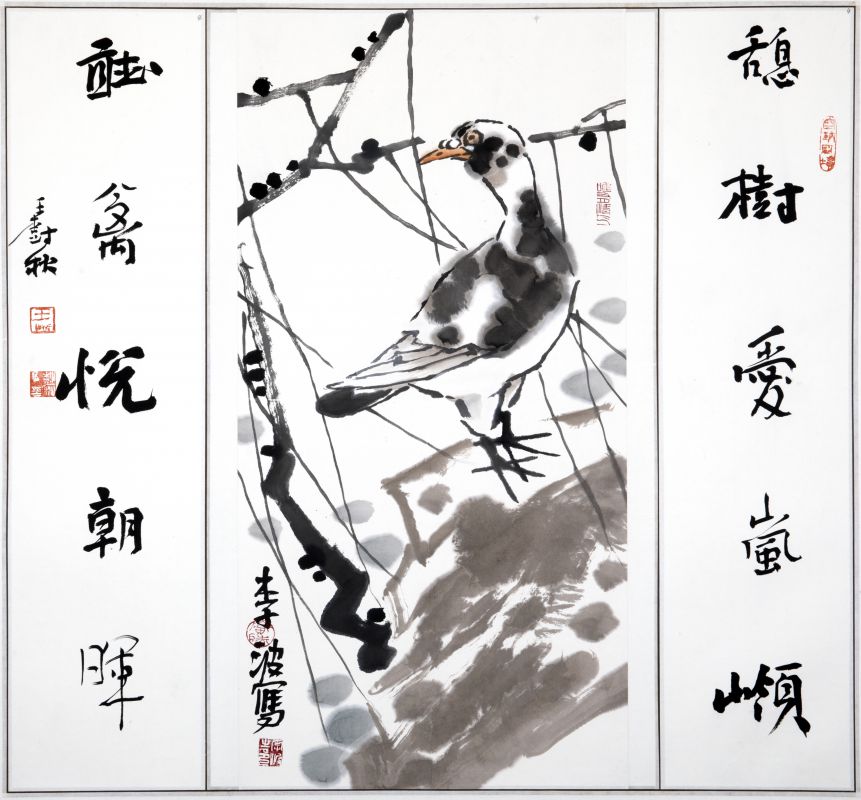 憩樹愛嵐嶺
李波寫
聽禽悅朝暉
王樹秋